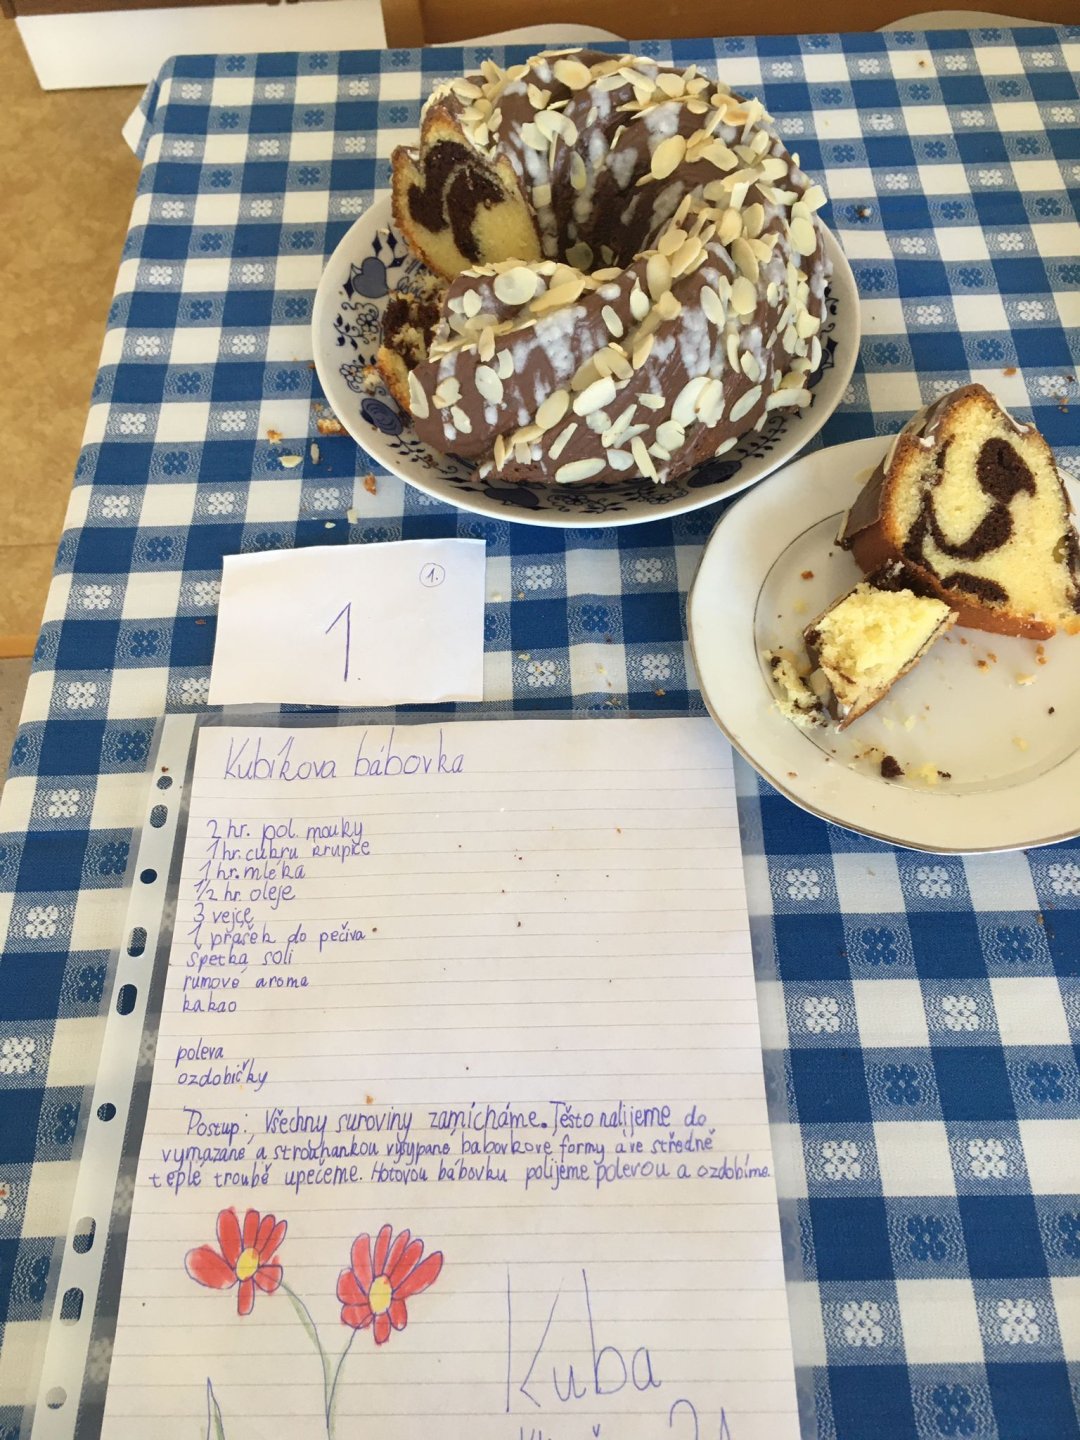 1.
1.
Kubíkova bábovka
2 hr. pol. mouky
1 hr. cukru krupice
1 hr. mléka
1/2 hr. oleje
3 vejce
1 prášek do pečiva
špetka soli
rumové aroma
kakao
poleva
ozdobičky
Postup: Všechny suroviny zamícháme. Těsto nalijeme do
vymazané a strouhankou vysypané bábovkové formy a ve středně
teplé troubě upečeme. Hotovou bábovku polijeme polevou a ozdobíme.
Kuba